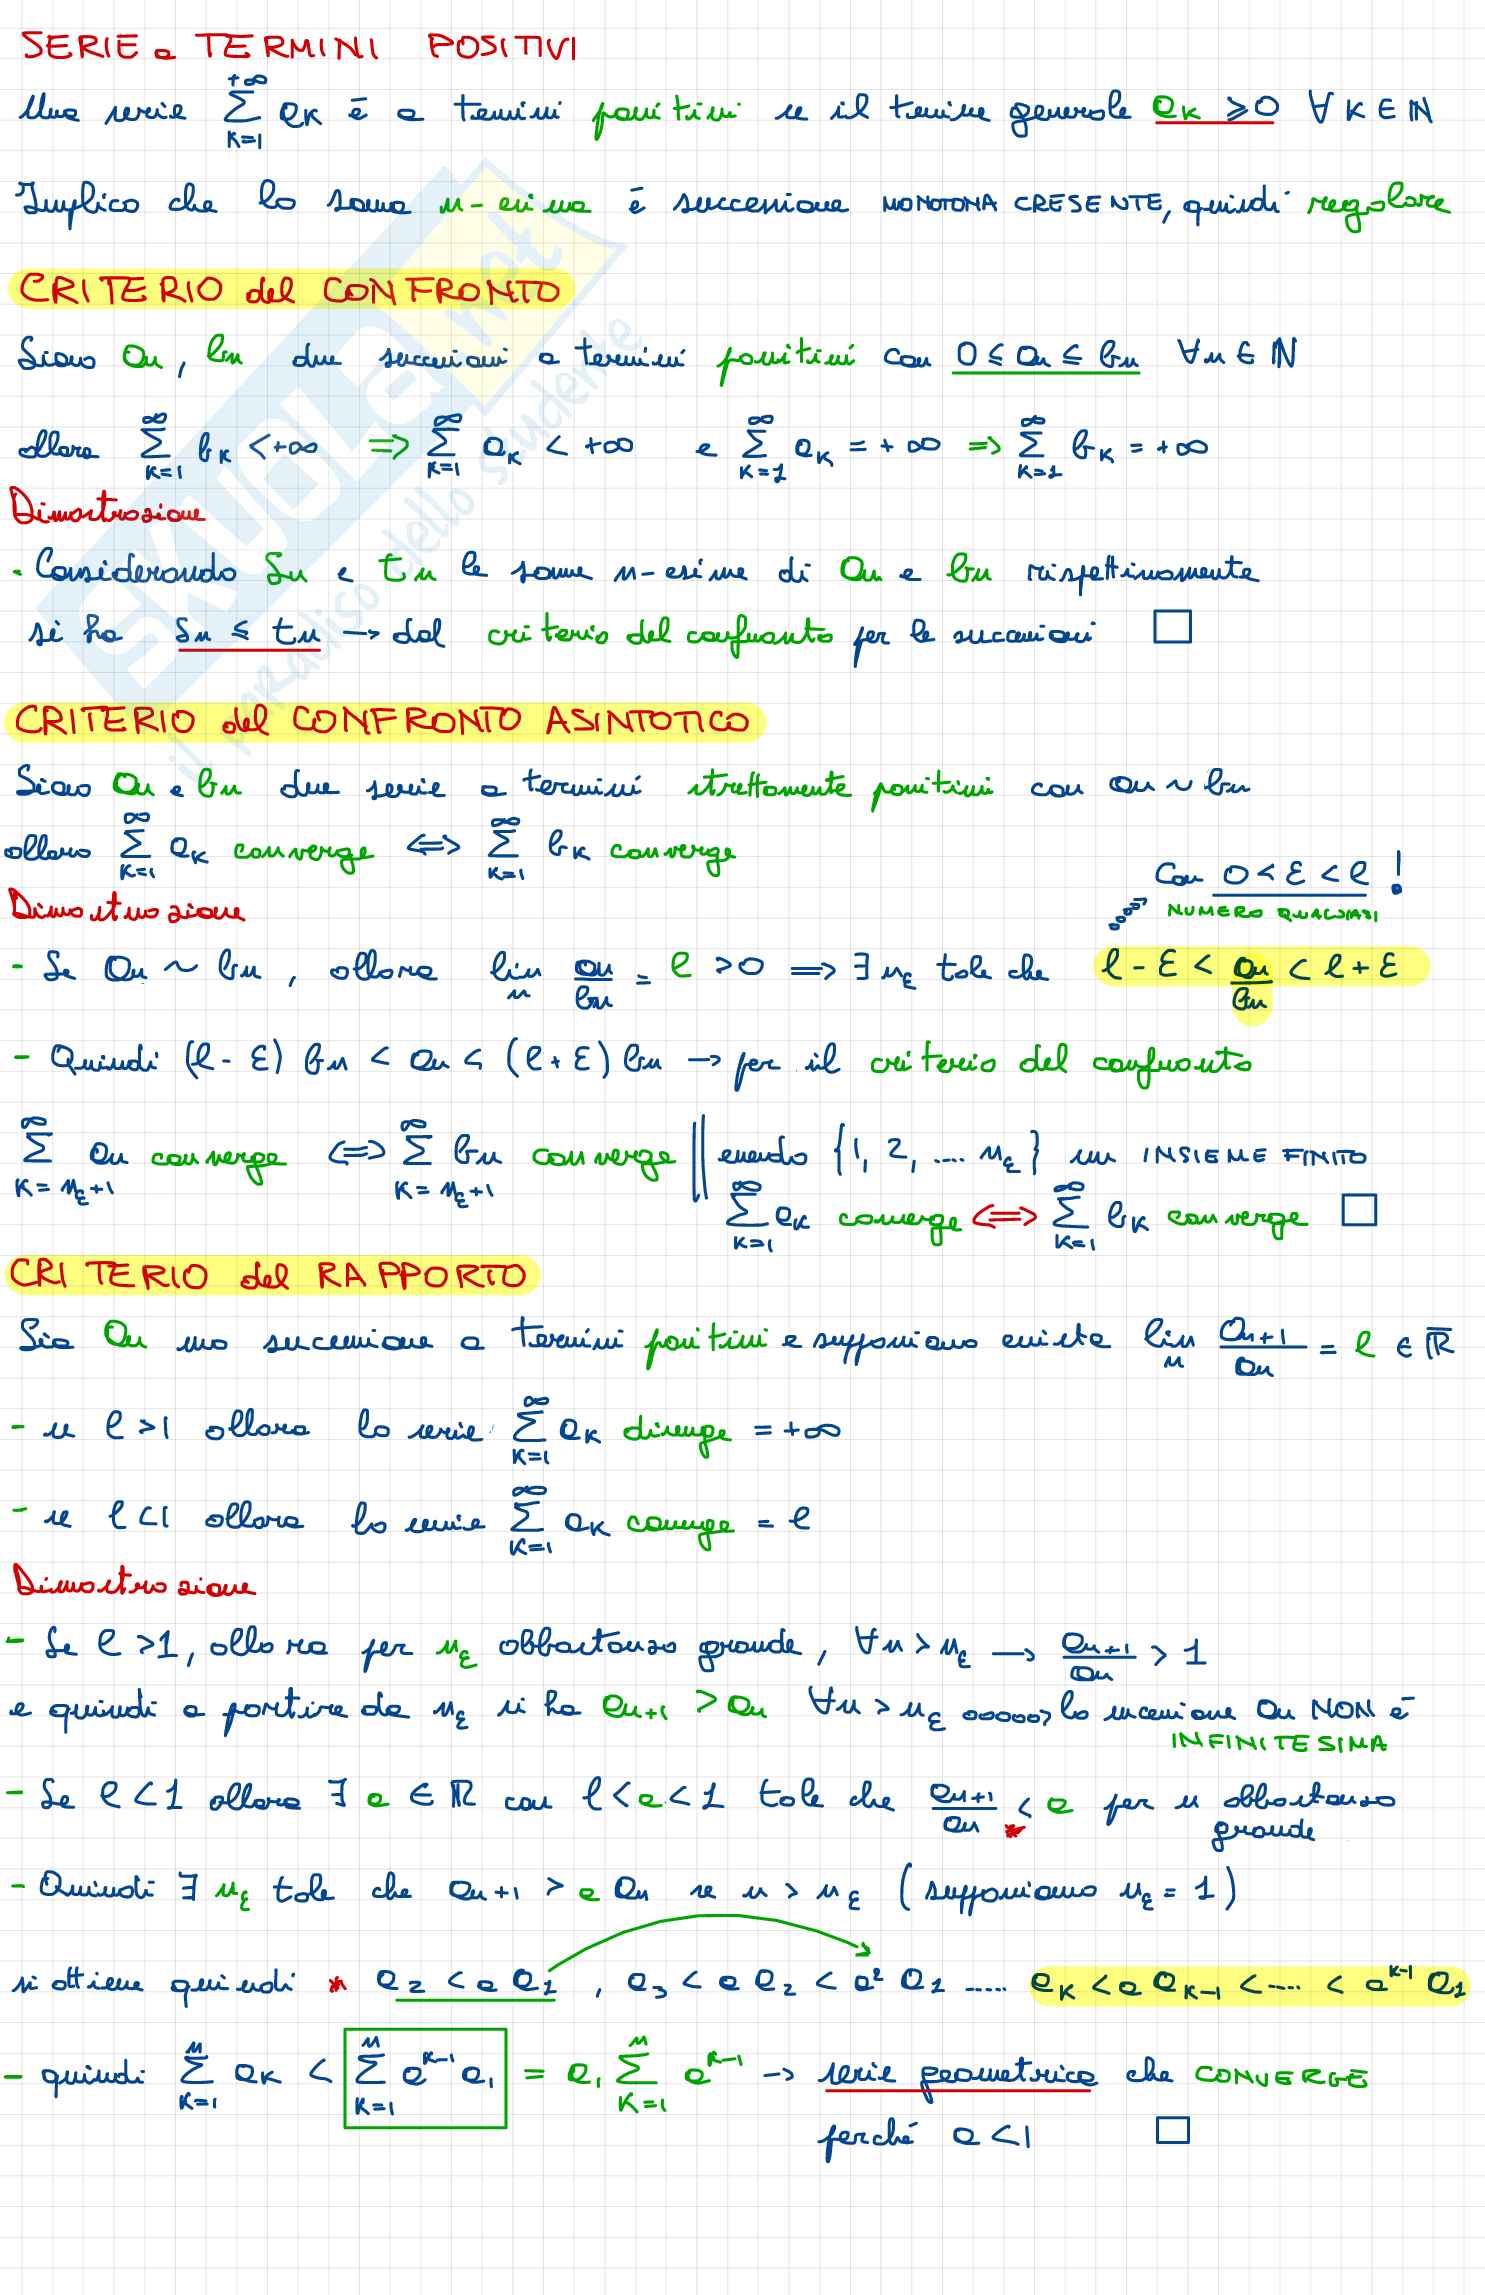 SERIE a TERMINI POSITIVI
Una serie $\sum_{K=1}^{+\infty} a_K$ è a termini positivi se il termine generale $a_K \geqslant 0$ ∀ K ∈ ℕ
Implica che la somma n-esima è successione MONOTONA CRESENTE, quindi regolare
CRITERIO del CONFRONTO
Siano an, bn due successioni a termini positivi con 0 ≤ an ≤ bn ∀n ∈ ℕ
allora $\sum_{K=1}^{\infty} b_K < +\infty \Rightarrow \sum_{K=1}^{\infty} a_K < +\infty$ e $\sum_{K=1}^{\infty} a_K = +\infty \Rightarrow \sum_{K=1}^{\infty} b_K = +\infty$
Dimostrazione
- Considerando Sn e tn le somme n-esime di an e bn rispettivamente
si ha Sn ≤ tn → dal criterio del confronto per le successioni □
CRITERIO del CONFRONTO ASINTOTICO
Siano an e bn due serie a termini strettamente positivi con an ~ bn
allora $\sum_{K=1}^{\infty} a_K$ converge ⟺ $\sum_{K=1}^{\infty} b_K$ converge
Con 0 < ε < l !
NUMERO QUALSIASI
Dimostrazione
- Se an ~ bn, allora $\lim_n \frac{a_n}{b_n} = l > 0$ ⟹ ∃ nε tale che $l - ε < \frac{a_n}{b_n} < l + ε$
- Quindi (l - ε) bn < an < (l + ε) bn → per il criterio del confronto
$\sum_{K=n_ε+1}^{\infty} a_n$ converge ⟺ $\sum_{K=n_ε+1}^{\infty} b_n$ converge || essendo {1, 2, .... nε} un INSIEME FINITO
$\sum_{K=1}^{\infty} a_K$ converge ⟺ $\sum_{K=1}^{\infty} b_K$ converge □
CRITERIO del RAPPORTO
Sia an una successione a termini positivi e supponiamo esista $\lim_n \frac{a_{n+1}}{a_n} = l ∈ \overline{ℝ}$
- se l > 1 allora la serie $\sum_{K=1}^{\infty} a_K$ diverge = +∞
- se l < 1 allora la serie $\sum_{K=1}^{\infty} a_K$ converge = l
Dimostrazione
- Se l > 1, allora per nε abbastanza grande, ∀n > nε → $\frac{a_{n+1}}{a_n} > 1$
e quindi a partire da nε si ha $a_{n+1} > a_n$ ∀n > nε → la successione an NON è
INFINITESIMA
- Se l < 1 allora ∃ a ∈ ℝ con l < a < 1 tale che $\frac{a_{n+1}}{a_n} < a$ * per n abbastanza
grande
- Quindi ∃ nε tale che $a_{n+1} > a\, a_n$ se n > nε (supponiamo nε = 1)
si ottiene quindi * $a_2 < a\, a_1$, $a_3 < a\, a_2 < a^2 a_1$ ..... $a_K < a\, a_{K-1} < .... < a^{K-1} a_1$
- quindi $\sum_{K=1}^{n} a_K < \sum_{K=1}^{n} a^{K-1} a_1 = a_1 \sum_{K=1}^{n} a^{K-1}$ → serie geometrica che CONVERGE
perché a < 1 □
SKUOLA.net
il paradiso dello studente